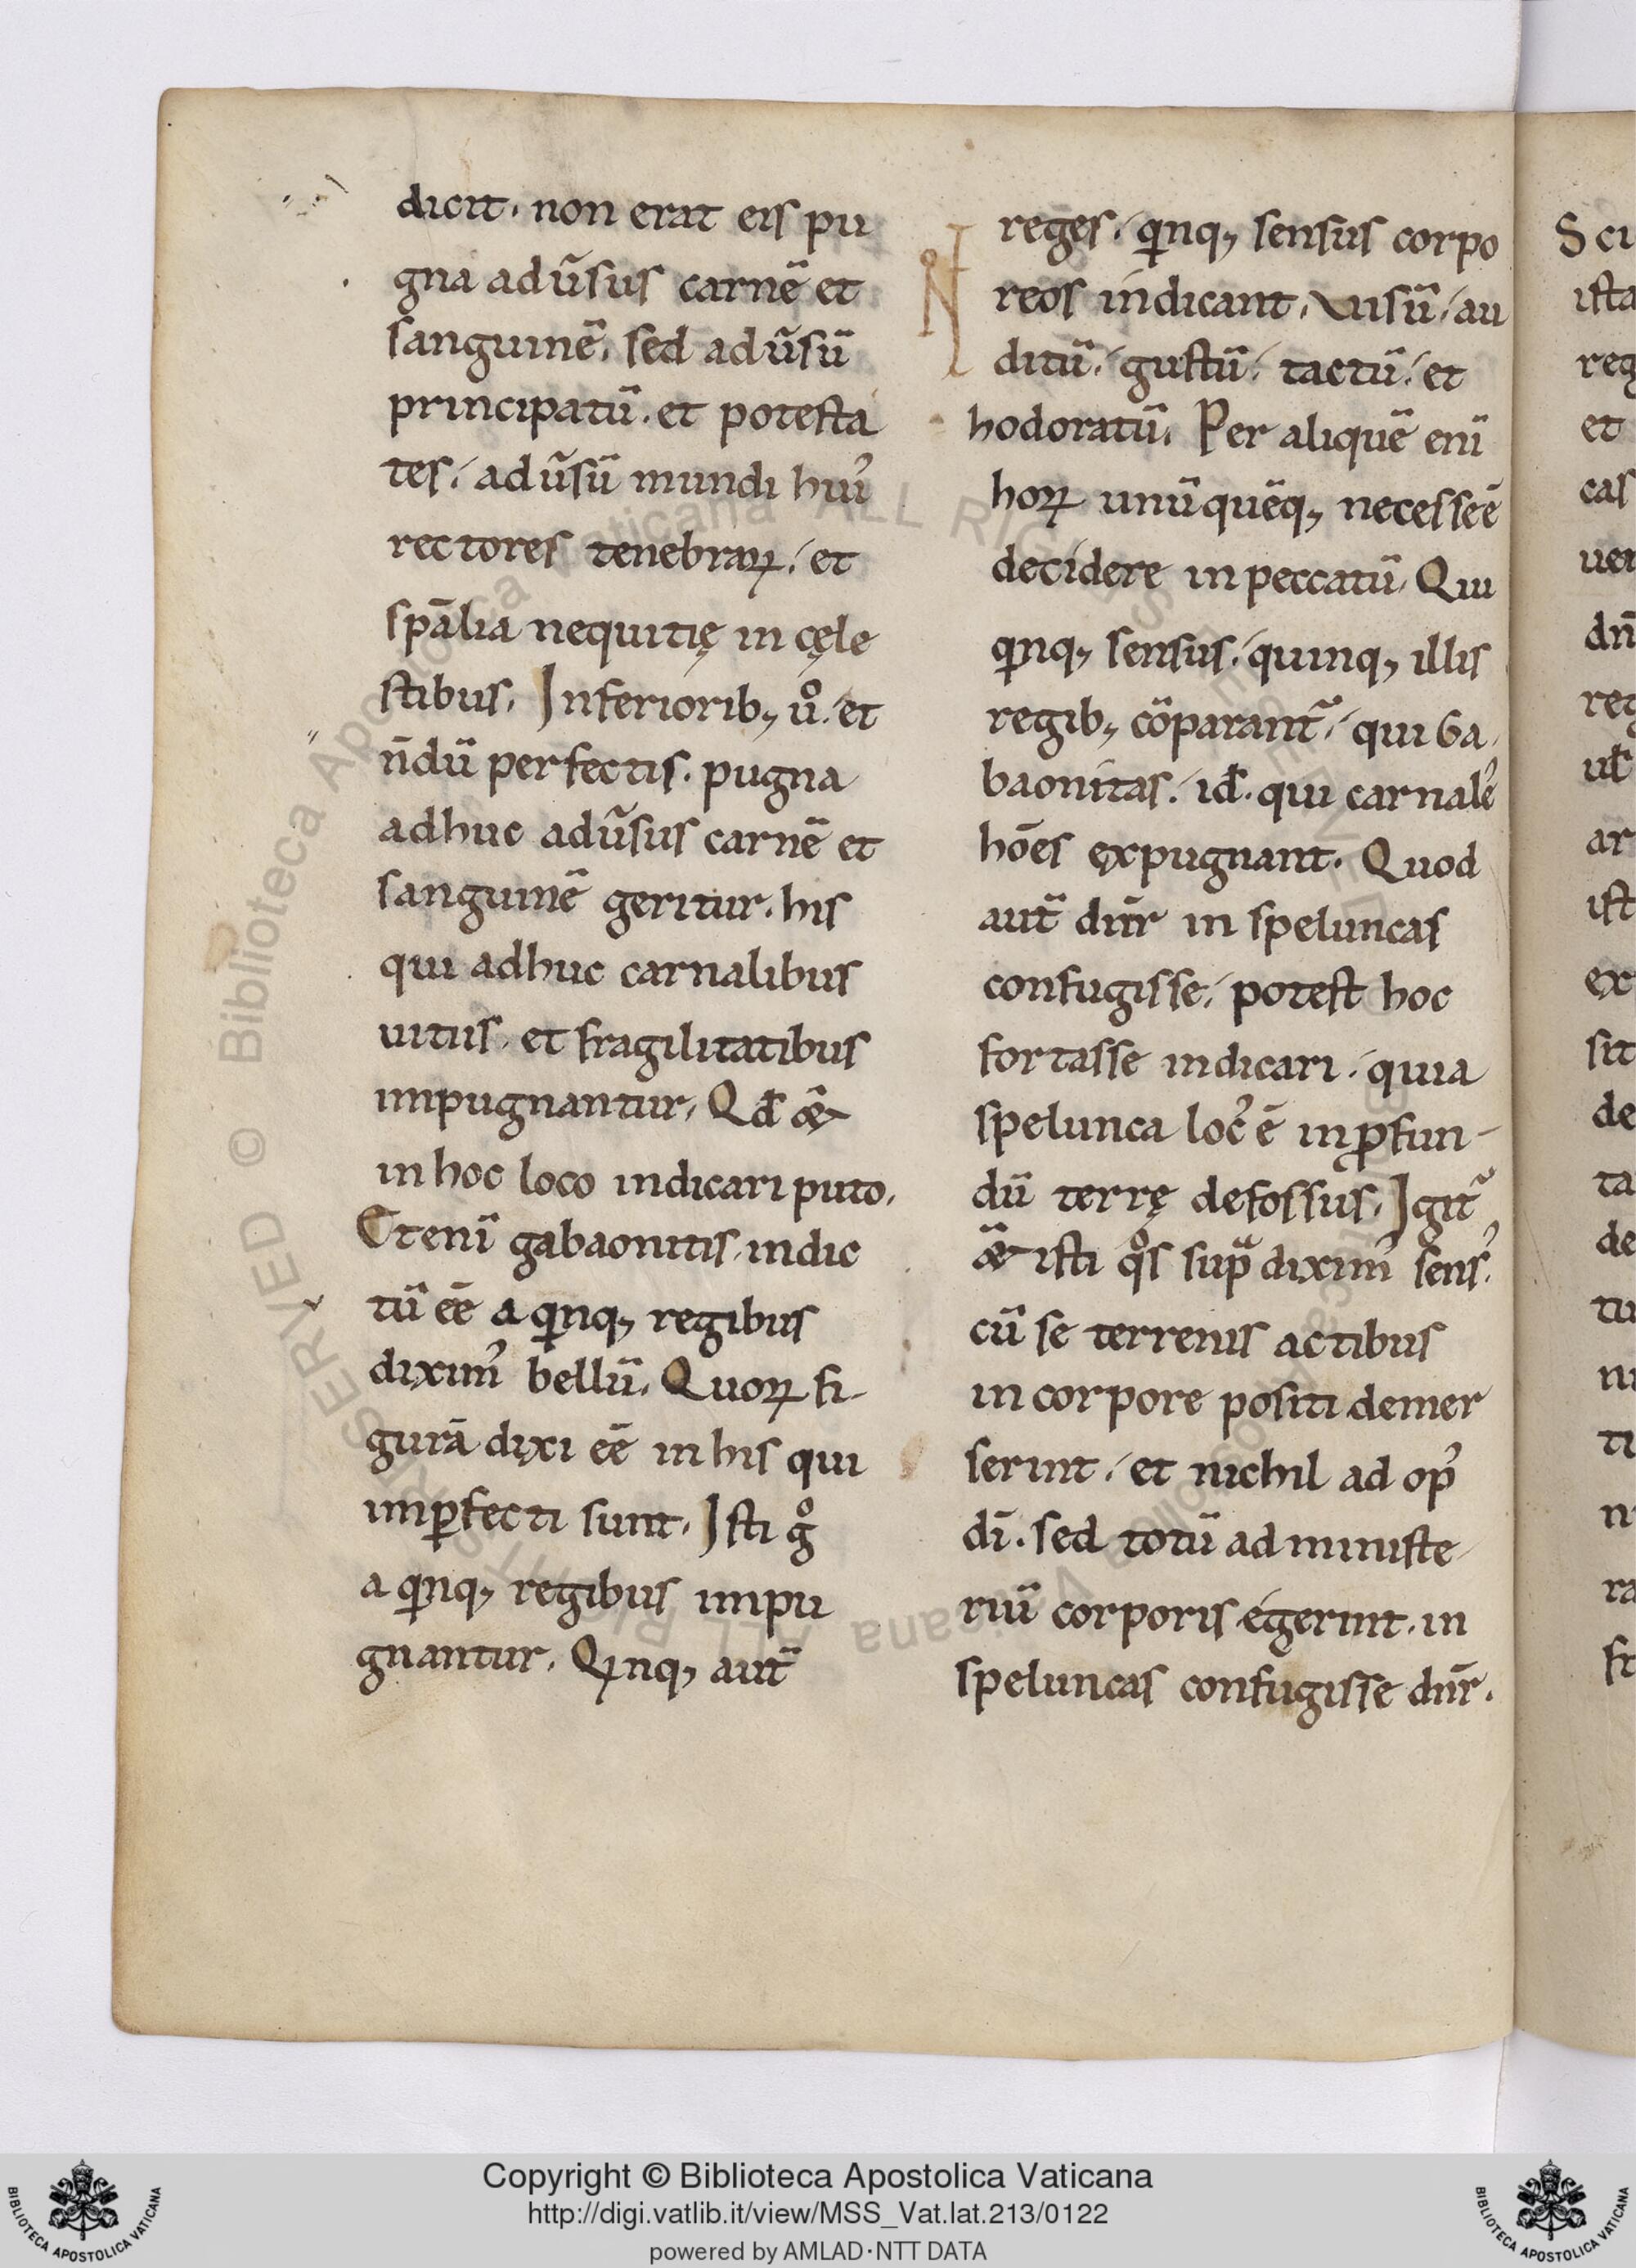 dicit. non erat eis pu
gna adũsus carnẽ et
sanguinẽ. sed adũsũ
principatũ. et potesta
tes. adũsũ mundi hui᾽
rectores tenebraꝝ. et
sp̃alia nequitię in cęle
stibus. Inferiorib; ůo. et
ñdũ perfectis. pugna
adhuc adũsus carnẽ et
sanguinẽ geritur. his
qui adhuc carnalibus
uitiis. et fragilitatibus
impugnantur. Qd̃ &̃
in hoc loco indicari puto.
Etenĩ gabaonitis. indic
tũ eẽ a qͥnq; regibus
diximꝰ bellũ. Quoꝝ fi-
gurã dixi eẽ in his qui
imꝑfecti sunt. Isti gͦ
a qͥnq; regibus impu
gnantur. Qͥnq; aut̃
reges. qͥnq; sensus corpo
reos indicant. uisũ. au
ditũ. gustũ. tactũ. et
hodoratũ. Per aliquẽ enĩ
hoꝝ unũquẽq; necesseẽ
decidere in peccatũ. Qui
qͥnq; sensus. quinq; illis
regib; cõparant᷑. qui Ga
baonitas. id̃. qui carnale᾽
hões expugnant. Quod
aut̃ dñr in speluncas
confugisse. potest hoc
fortasse indicari. quia
spelunca locꝰ ẽ in ꝓfun-
dũ terrę defossus. Igit᷑
&̃ isti qͦs supͣ diximꝰ sensꝰ.
cũ se terrenis actibus
in corpore positi demer
serint. et nichil ad opꝰ
dĩ. sed totũ ad ministe
riũ corporis egerint. in
speluncas confugisse dñr.
Sci
ista
reg
et
cas
uer
dñ
reg
ul̃
ar
ist
ex
sit
de
ta
de
tu
ni
ti
n
ra
fr
© Biblioteca Apostolica Vaticana ALL RIGHTS RESERVED
Copyright © Biblioteca Apostolica Vaticana
http://digi.vatlib.it/view/MSS_Vat.lat.213/0122
powered by AMLAD·NTT DATA
BIBLIOTECA APOSTOLICA VATICANA
BIBLIOTECA APOSTOLICA VATICANA